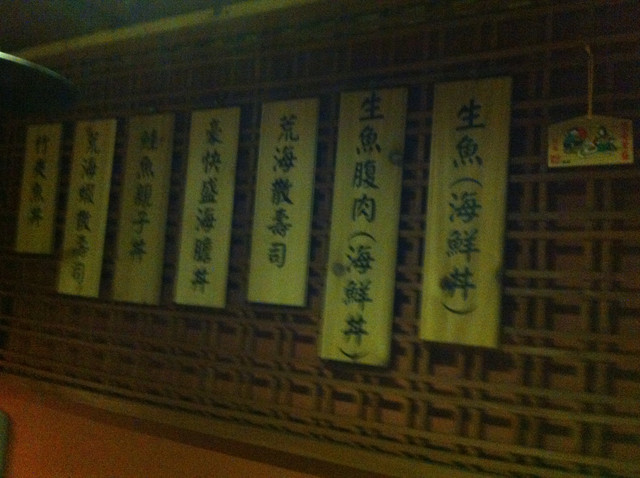 生魚(海鮮丼)
生魚腹肉(海鮮丼)
荒海散壽司
豪快盛海膽丼
鮭魚親子丼
荒海蝦散壽司
竹莢魚丼